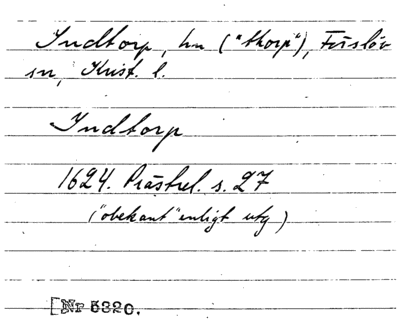 Indtorp, hn ("thorp"), Förslöv
sn, Krist. l.
Indtorp
1624. Prästrel. s. 27
("obekant" enligt utg)
[Nr 5320.